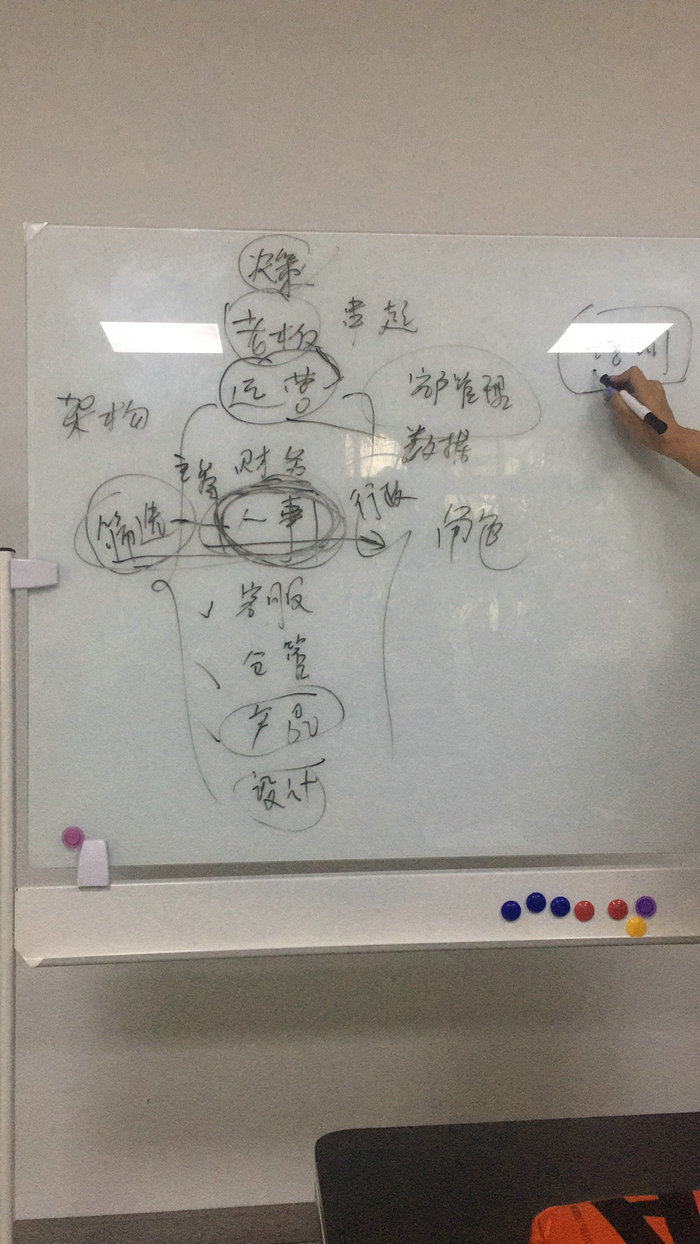 决策
老板 串起
运营
部管理
架构
数据
主管 财务
行政
筛选 人事
角色
客服
仓管
产品
设计